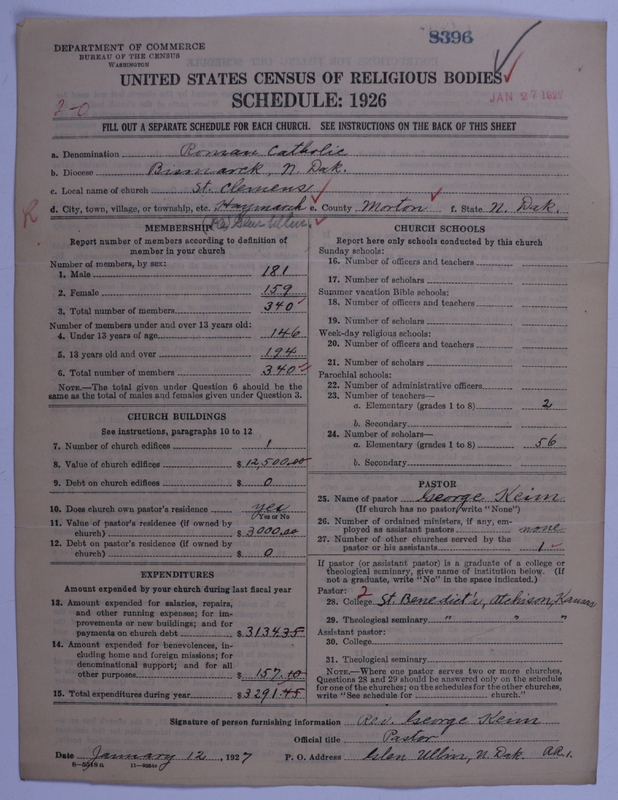 8396
DEPARTMENT OF COMMERCE
BUREAU OF THE CENSUS
WASHINGTON
UNITED STATES CENSUS OF RELIGIOUS BODIES
SCHEDULE: 1926
JAN 27 1927
2-0
FILL OUT A SEPARATE SCHEDULE FOR EACH CHURCH. SEE INSTRUCTIONS ON THE BACK OF THIS SHEET
a. Denomination Roman Catholic
b. Diocese Bismarck, N. Dak.
c. Local name of church St. Clemens
d. City, town, village, or township, etc. Haymarsh e. County Morton f. State N. Dak.
R
(P.O.) Glen Ullin.
MEMBERSHIP
Report number of members according to definition of
member in your church
Number of members, by sex:
1. Male 181
2. Female 159
3. Total number of members 340
Number of members under and over 13 years old:
4. Under 13 years of age 146
5. 13 years old and over 194
6. Total number of members 340
NOTE.—The total given under Question 6 should be
same as the total of males and females given under Question 3.
CHURCH BUILDINGS
See instructions, paragraphs 10 to 12
7. Number of church edifices 1
8. Value of church edifices $ 12,500.00
9. Debt on church edifices $ 0
10. Does church own pastor's residence yes
Yes or No
11. Value of pastor's residence (if owned by
church) $ 3000.00
12. Debt on pastor's residence (if owned by
church) $ 0
EXPENDITURES
Amount expended by your church during last fiscal year
13. Amount expended for salaries, repairs,
and other running expenses; for im-
provements or new buildings; and for
payments on church debt $ 3134.35
14. Amount expended for benevolences, in-
cluding home and foreign missions; for
denominational support; and for all
other purposes $ 157.10
15. Total expenditures during year $ 3291.45
CHURCH SCHOOLS
Report here only schools conducted by this church
Sunday schools:
16. Number of officers and teachers
17. Number of scholars
Summer vacation Bible schools:
18. Number of officers and teachers
19. Number of scholars
Week-day religious schools:
20. Number of officers and teachers
21. Number of scholars
Parochial schools:
22. Number of administrative officers
23. Number of teachers—
a. Elementary (grades 1 to 8) 2
b. Secondary
24. Number of scholars—
a. Elementary (grades 1 to 8) 56
b. Secondary
PASTOR
25. Name of pastor George Keim
(If church has no pastor, write "None")
26. Number of ordained ministers, if any, em-
ployed as assistant pastors none
27. Number of other churches served by the
pastor or his assistants 1
If pastor (or assistant pastor) is a graduate of a college or
theological seminary, give name of institution below. (If
not a graduate, write "No" in the space indicated.)
Pastor: 2
28. College St. Benedict's, Atchison, Kansas
29. Theological seminary " " "
Assistant pastor:
30. College
31. Theological seminary
NOTE.—Where one pastor serves two or more churches,
Questions 28 and 29 should be answered only on the schedule
for one of the churches; on the schedules for the other churches,
write "See schedule for church."
Signature of person furnishing information Rev. George Keim
Official title Pastor
Date January 12, 1927 P. O. Address Glen Ullin, N. Dak. RR 1.